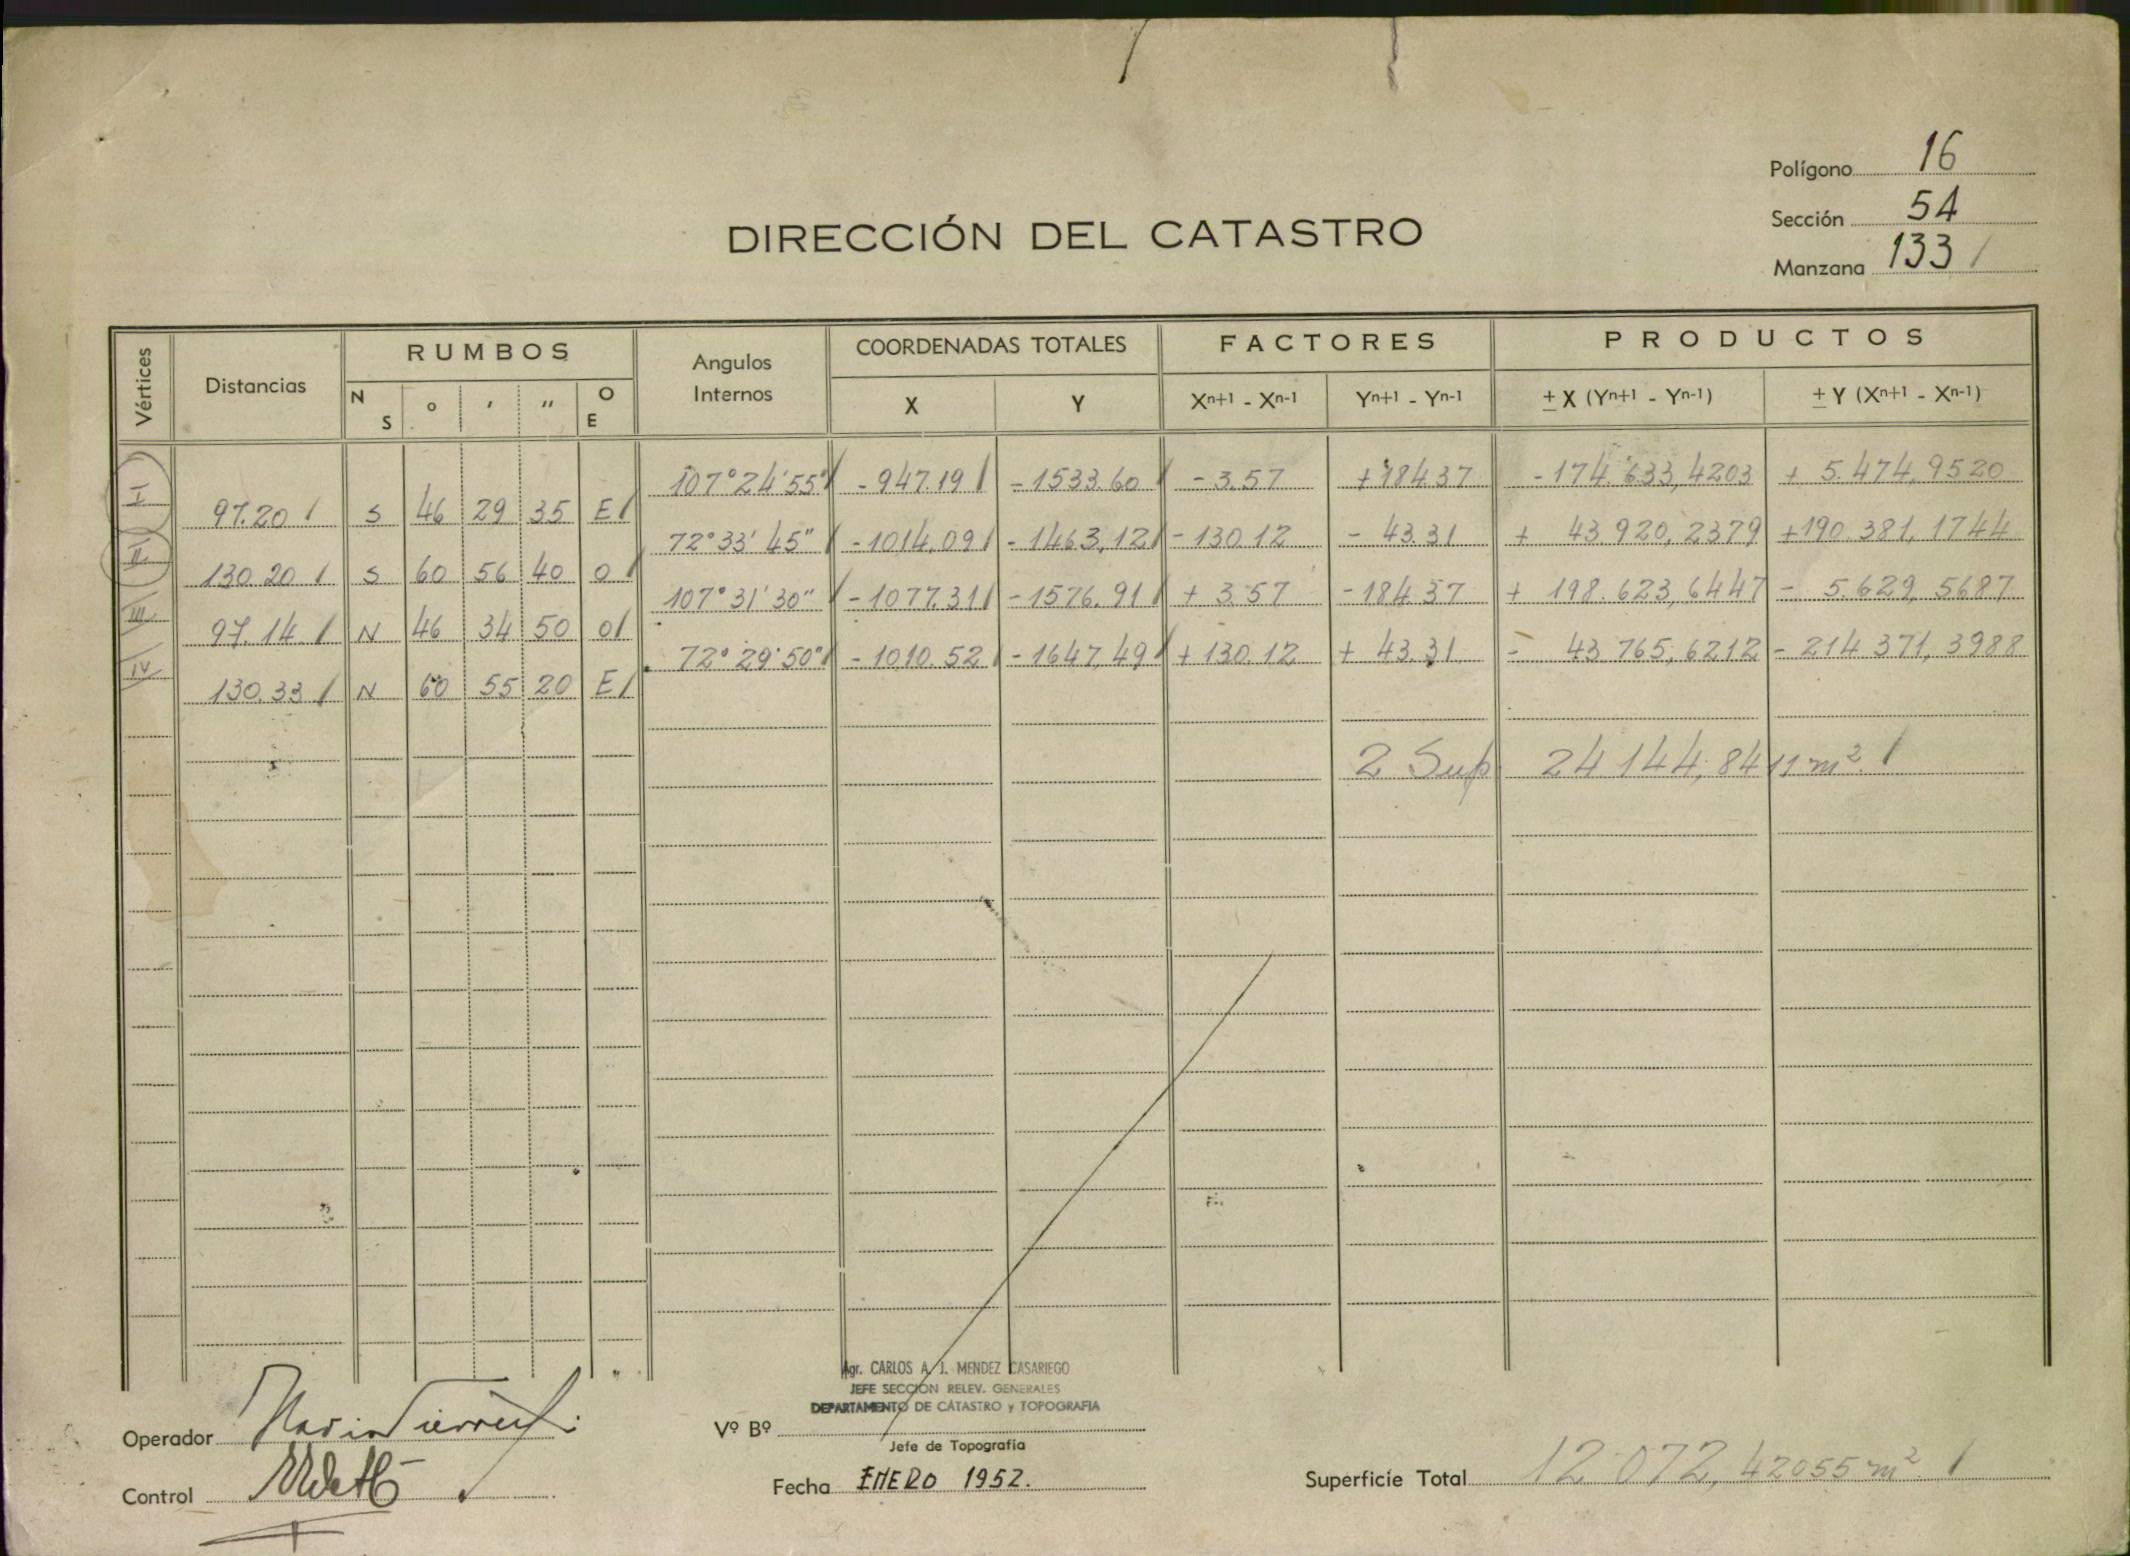 Polígono 16
Sección 54
Manzana 133 /
DIRECCIÓN DEL CATASTRO
Vértices Distancias RUMBOS Angulos Internos COORDENADAS TOTALES FACTORES PRODUCTOS
N S ° ' " O E X Y Xn+1 - Xn-1 Yn+1 - Yn-1 ± X (Yn+1 - Yn-1) ± Y (Xn+1 - Xn-1)
I 107°24'55" / -947.19 / -1533.60 / -3.57 +184.37 -174.633,4203 + 5.474,9520
97.20 / S 46 29 35 E /
II 72°33'45" / -1014.09 / -1463,12 / -130.12 - 43.31 + 43.920,2379 +190.381,1744
130.20 / S 60 56 40 O /
III 107°31'30" / -1077.31 / -1576.91 / + 3.57 -184.37 + 198.623,6447 - 5.629,5687
97.14 / N 46 34 50 O /
IV 72°29'50" / -1010.52 / -1647,49 / +130.12 + 43.31 - 43 765,6212 - 214 371,3988
130.33 / N 60 55 20 E /
2 Sup 24 144,8411 m² /
Agr. CARLOS A. J. MENDEZ CASARIEGO
JEFE SECCION RELEV. GENERALES
DEPARTAMENTO DE CATASTRO y TOPOGRAFIA
Operador
Vº Bº
Jefe de Topografía
Control
Fecha ENERO 1952.
Superficie Total 12 072,42055 m² /